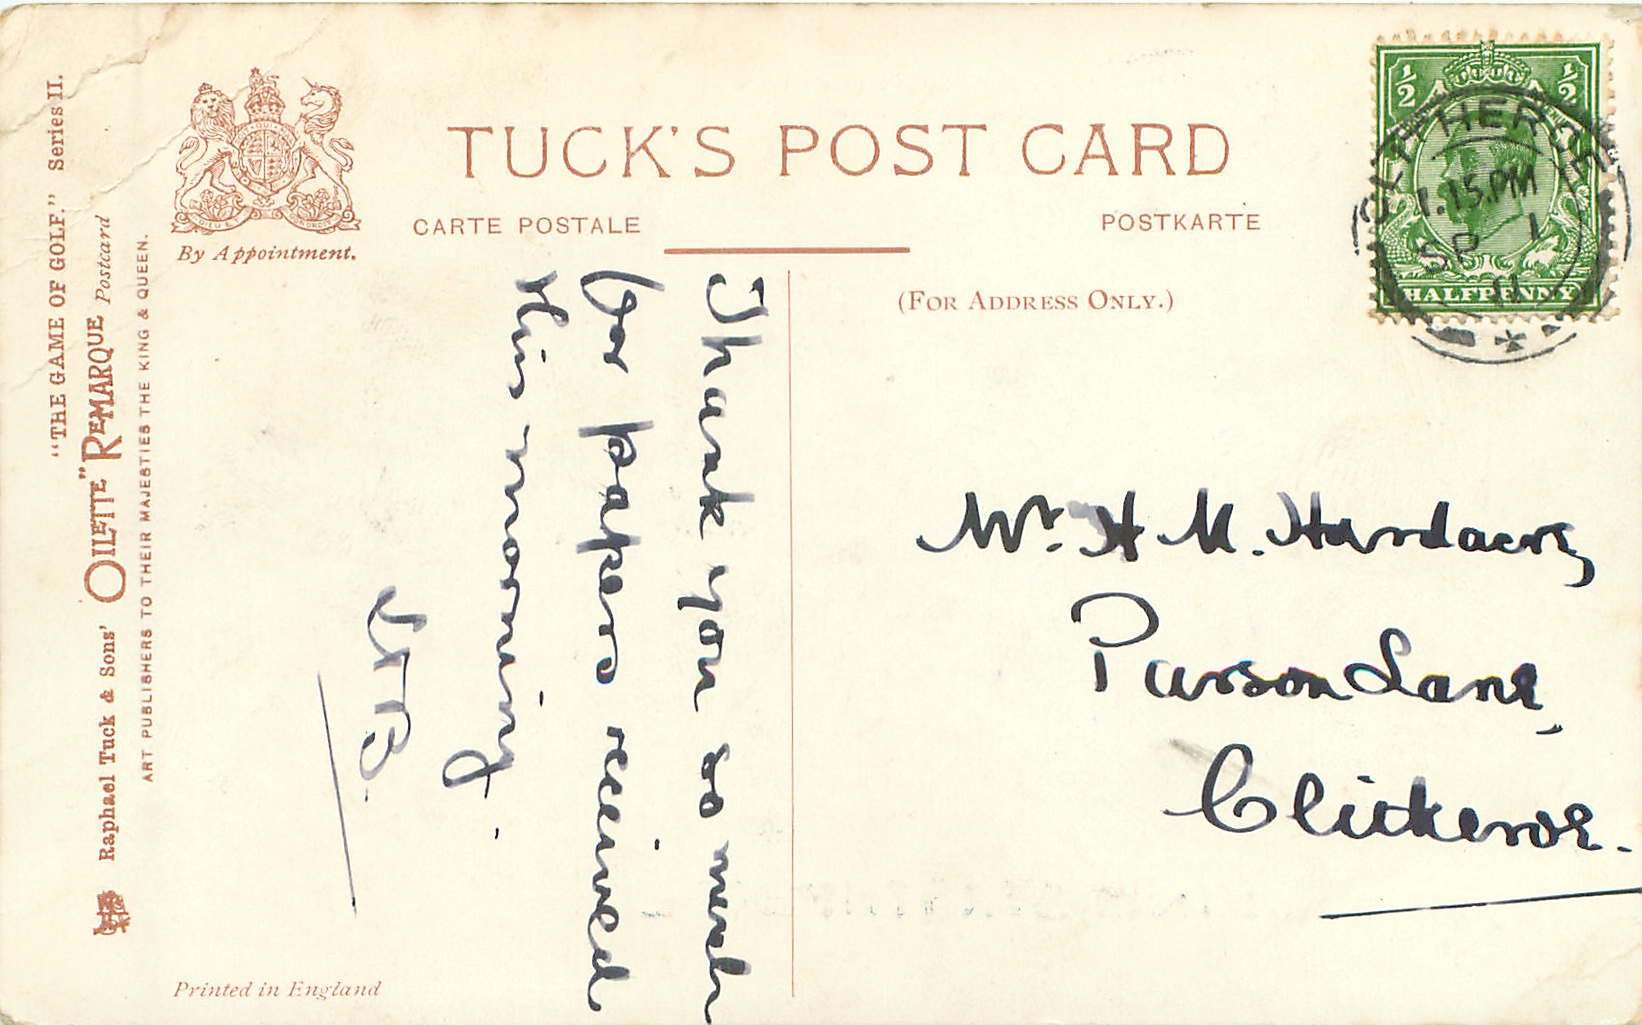 "THE GAME OF GOLF." Series II.
Raphael Tuck & Sons' "OILETTE" REMARQUE Postcard
ART PUBLISHERS TO THEIR MAJESTIES THE KING & QUEEN.
By Appointment.
TUCK'S POST CARD
CARTE POSTALE
POSTKARTE
(FOR ADDRESS ONLY.)
1/2 1/2
HALFPENNY
1.15.PM
SP 1
11
Thank you so much
for papers received
this morning.
Mr. H. M.
Parson Lane,
Printed in England